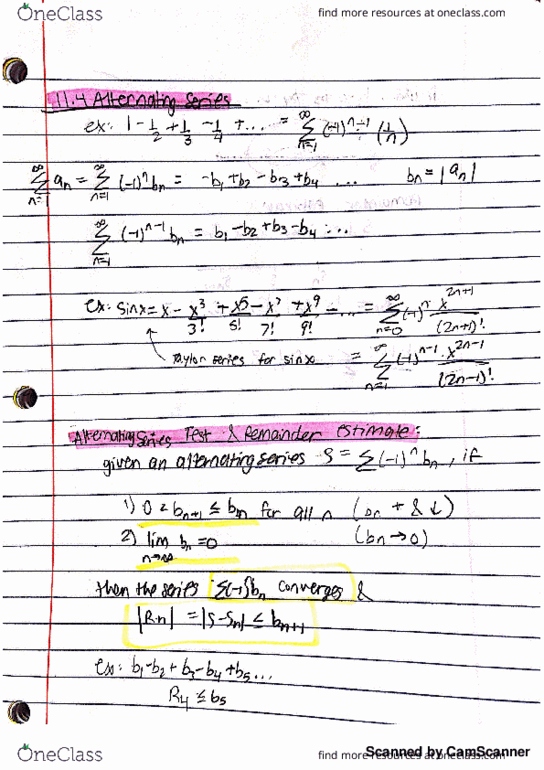 OneClass
find more resources at oneclass.com
11.4 Alternating Series
ex: 1 - 1/2 + 1/3 - 1/4 + ... = ∞ Σ n=1 (-1)^(n-1) (1/n)
∞ Σ n=1 an = ∞ Σ n=1 (-1)^n bn = -b1 + b2 - b3 + b4 ... bn = |an|
∞ Σ n=1 (-1)^(n-1) bn = b1 - b2 + b3 - b4 ...
ex: sinx = x - x^3/3! + x^5/5! - x^7/7! + x^9/9! - ... = ∞ Σ n=0 (-1)^n x^(2n+1)/(2n+1)!
Taylor series for sinx = ∞ Σ n=1 (-1)^(n-1) · x^(2n-1)/(2n-1)!
Alternating Series Test & Remainder estimate:
given an alternating series S = Σ(-1)^n bn, if
1) 0 < bn+1 ≤ bn for all n (bn + & ↓)
2) lim n→∞ bn = 0 (bn → 0)
then the series Σ(-1)^n bn converges &
|Rn| = |S - Sn| ≤ bn+1
ex: b1 - b2 + b3 - b4 + b5 ...
R4 ≤ b5
OneClass
find more resources at oneclass.com
Scanned by CamScanner